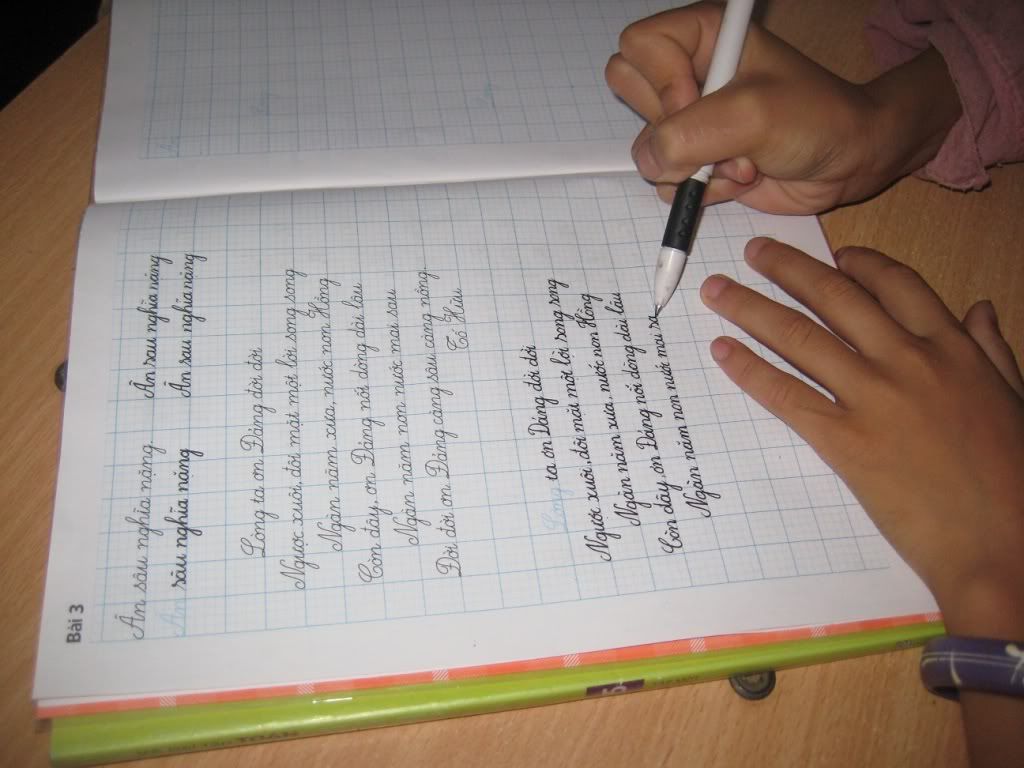 Bài 3
Ân sâu nghĩa nặng Ân sâu nghĩa nặng
Ân sâu nghĩa nặng Ân sâu nghĩa nặng
Lòng ta ơn Đảng đời đời
Ngược xuôi, đôi mặt một lời song song
Ngàn năm xưa, nước non Hồng
Còn đây, ơn Đảng nối dòng dài lâu
Ngàn năm non nước mai sau
Đời đời ơn Đảng càng sâu càng nồng.
Tố Hữu
Lòng ta ơn Đảng đời đời
Ngược xuôi, đôi mặt một lời song song
Ngàn năm xưa, nước non Hồng
Còn đây, ơn Đảng nối dòng dài lâu
Ngàn năm non nước mai sa
TOÁN
5